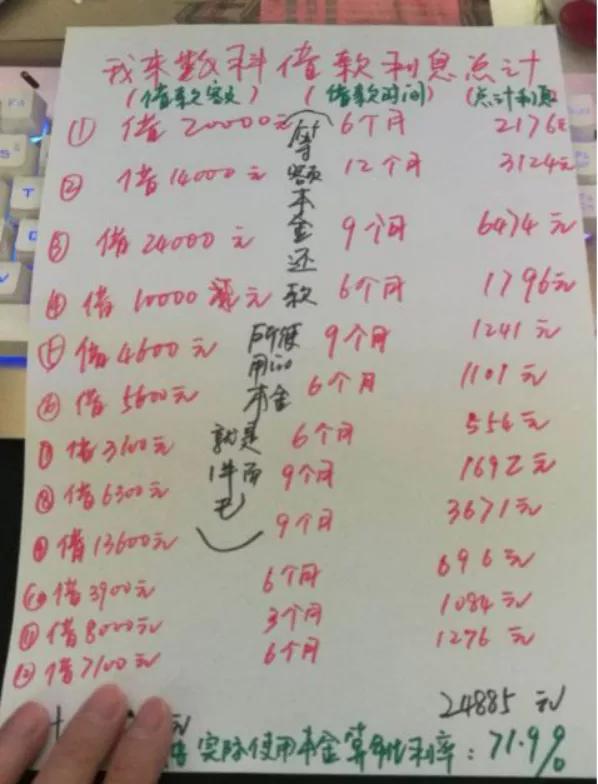 我来数科借款利息总计
(借款 ) (借款时间) (总计利息
① 借20000元 6个月 2176元
② 借14000元 12个月 3124元
③ 借24000元 9个月 6474元
④ 借10000元 6个月 1796元
⑤ 借4600元 9个月 1241元
⑥ 借5600元 6个月 1101元
⑦ 借3100元 6个月 556元
⑧ 借6300元 9个月 1692元
⑨ 借13600元 9个月 3671元
⑩ 借3900元 6个月 696元
⑪ 借8000元 3个月 1084元
⑫ 借7100元 6个月 1276元
(等额本金还款
所使用的本金
就是1半而已)
元 24885元
实际使用本金算年化利率：71.9%